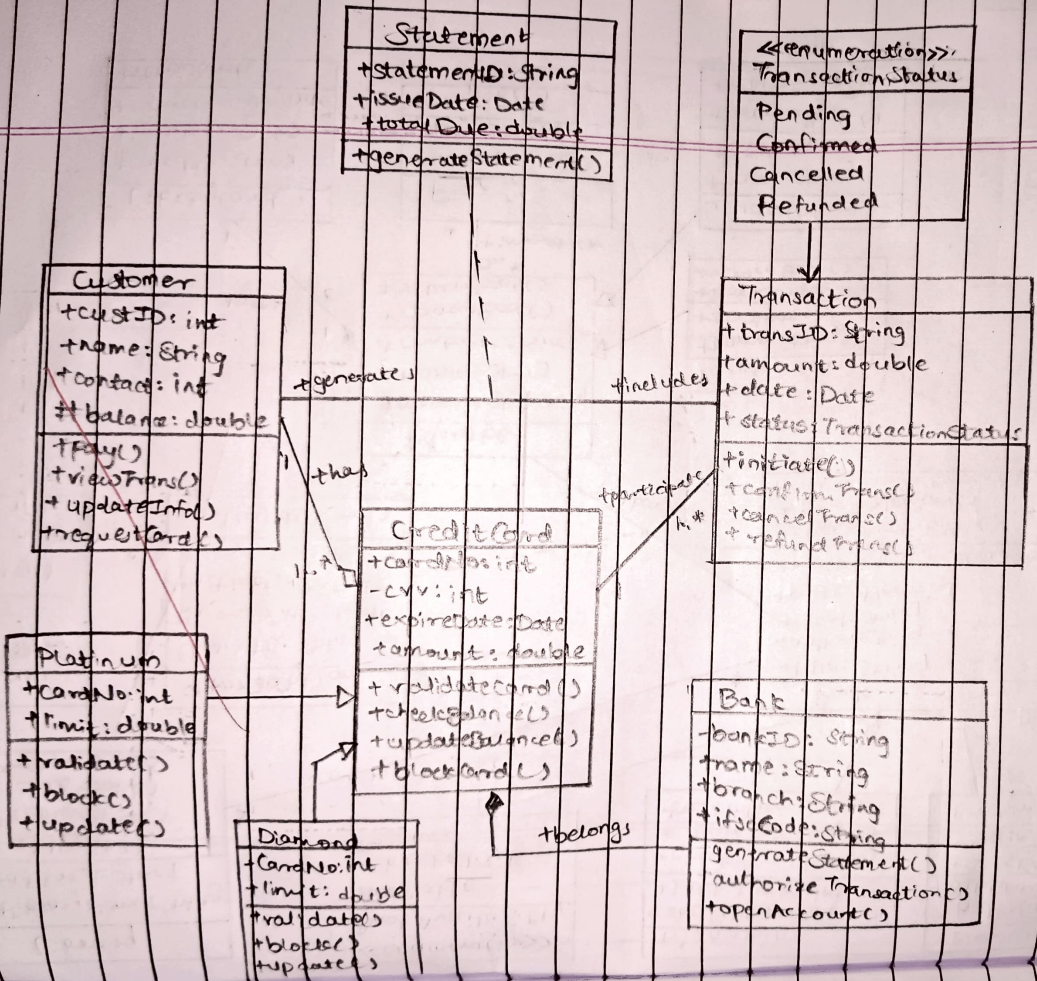 Statement
+statementID: String
+issueDate: Date
+totalDue: double
+generateStatement()
<<enumeration>>
TransactionStatus
Pending
Confirmed
Cancelled
Refunded
Customer
+custID: int
+name: String
+contact: int
# balance: double
+Pay()
+viewTrans()
+updateInfo()
+requestCard()
+generates
+includes
Transaction
+transID: String
+amount: double
+date: Date
+status: TransactionStatus
+initiate()
+confirmTrans()
+cancelTrans()
+refundTrans()
1
+has
1..*
+participate
1..*
1
CreditCard
+cardNo: int
-cvv: int
+expireDate: Date
+amount: double
+validateCard()
+checkBalance()
+updateBalance()
+blockCard()
Platinum
+cardNo: int
+limit: double
+validate()
+block()
+update()
Diamond
+CardNo: int
+limit: double
+validate()
+block()
+update()
+belongs
Bank
-bankID: String
+name: String
+branch: String
+ifscCode: String
generateStatement()
authorizeTransaction()
+openAccount()